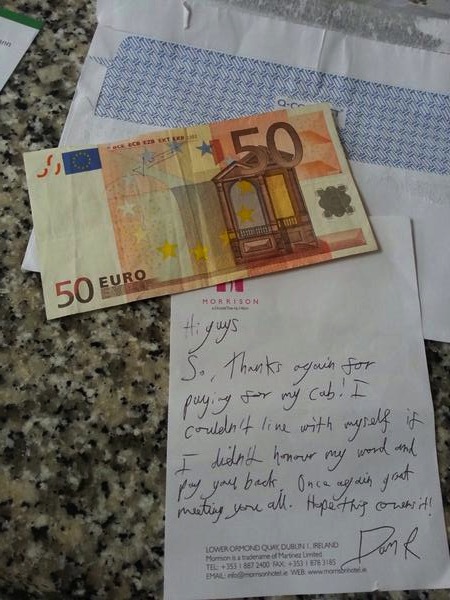 BCE ECB EZB EKT EKP 2002
50
50 EURO
ΕΥΡΩ
MORRISON
Hi guys
So, thanks again for
paying for my cab! I
couldn't live with myself if
I didn't honour my word and
pay you back. Once again great
meeting you all. Hope this covers it!
Dan R
LOWER ORMOND QUAY, DUBLIN 1, IRELAND
Morrison is a tradename of Martinez Limited
TEL: +353 1 887 2400 FAX: +353 1 878 3185
EMAIL: info@morrisonhotel.ie WEB: www.morrisonhotel.ie